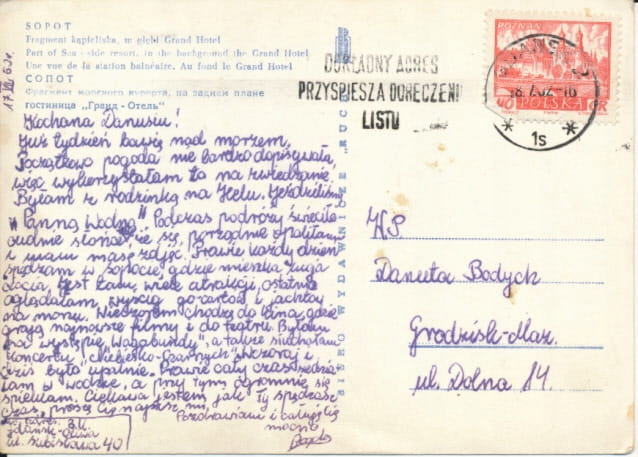 SOPOT
Fragment kąpieliska, w głębi Grand Hotel
Part of Sea-side resort, in the background the Grand Hotel
Une vue de la station balnéaire. Au fond le Grand Hotel
СОПОТ
Фрагмент морского курорта, на заднем плане
гостиница „Гранд-Отель“
Kochana Danusiu!
Już tydzień bawię nad morzem.
Początkowo pogoda nie bardzo dopisywała,
więc wykorzystałam to na zwiedzanie.
Byłam z rodzinką na Helu. Jeździliśmy
„Panną Wodną" Podczas podróży świeciło
cudnie słońce
i mam masę zdjęć. Prawie każdy dzień
spędzam w Sopocie, gdzie mieszka
ciocia, jest tam wiele atrakcji, ostatnio
oglądałam wyścig go-cartów i jachtów
na morzu. Wieczorem chodzę do kina, gdzie
grają najnowsze filmy i do teatru. Byłam
na występie „Wagabundy", a także słuchałam
koncertu „Niebiesko-Czarnych". Wczoraj i
dziś było upalnie. Prawie cały czas
w wodzie, a przy tym ogromnie się
Ciekawa jestem jak Ty spędzasz
czas, proszę Cię napisz mi,
Pozdrawiam i całuję Cię
mocno
Gdańsk-Oliwa
ul. Subisława 40
BIURO WYDAWNICZE „RUCH"
DOKŁADNY ADRES
PRZYSPIESZA DORĘCZENIE
LISTU
1s
POZNAŃ
40 POLSKA GR
WP
Danuta Bodych
Grodzisk-Maz.
ul. Dolna 14.